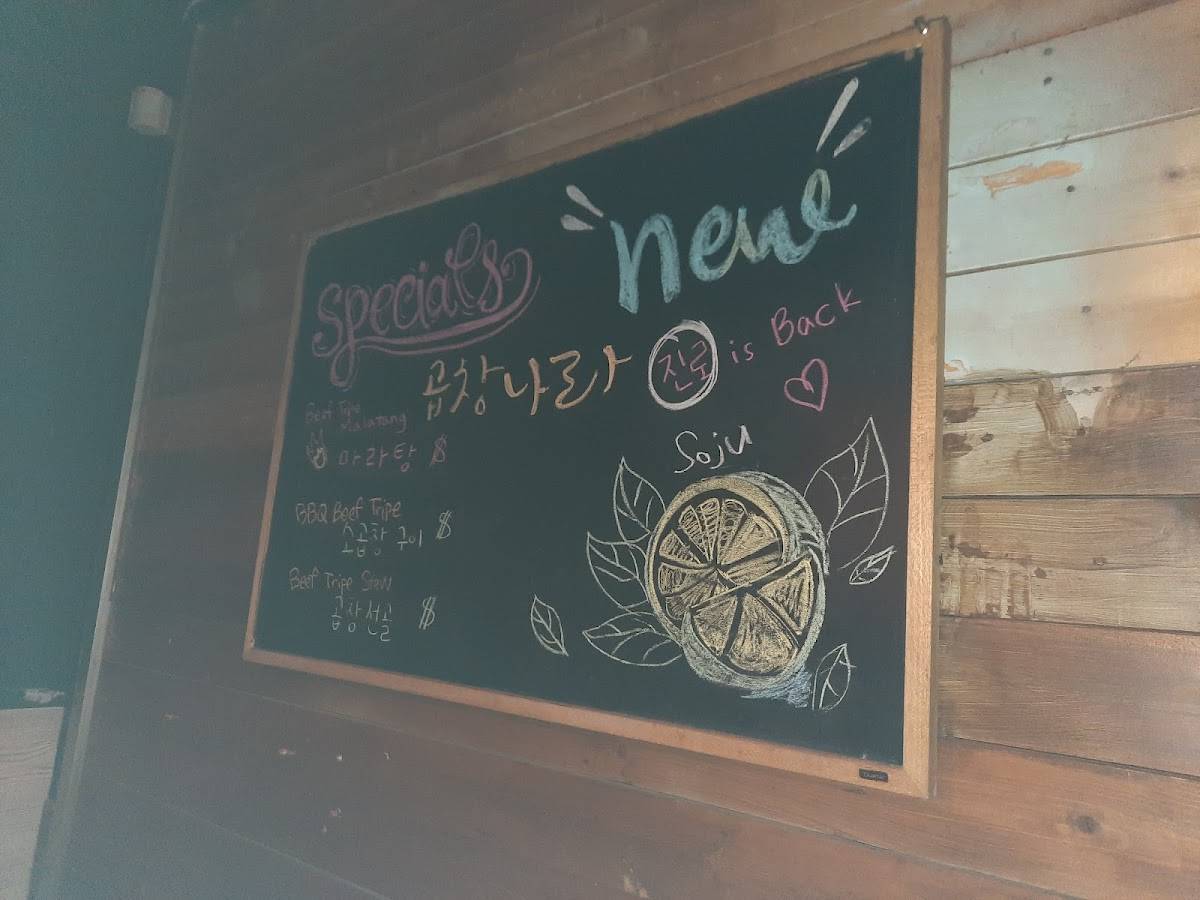 Specials
new
곱창나라
진로 is Back
Soju
Beef Tripe
Malatang
마라탕 $
BBQ Beef Tripe
소곱창 구이 $
Beef Tripe Stew
곱창전골 $